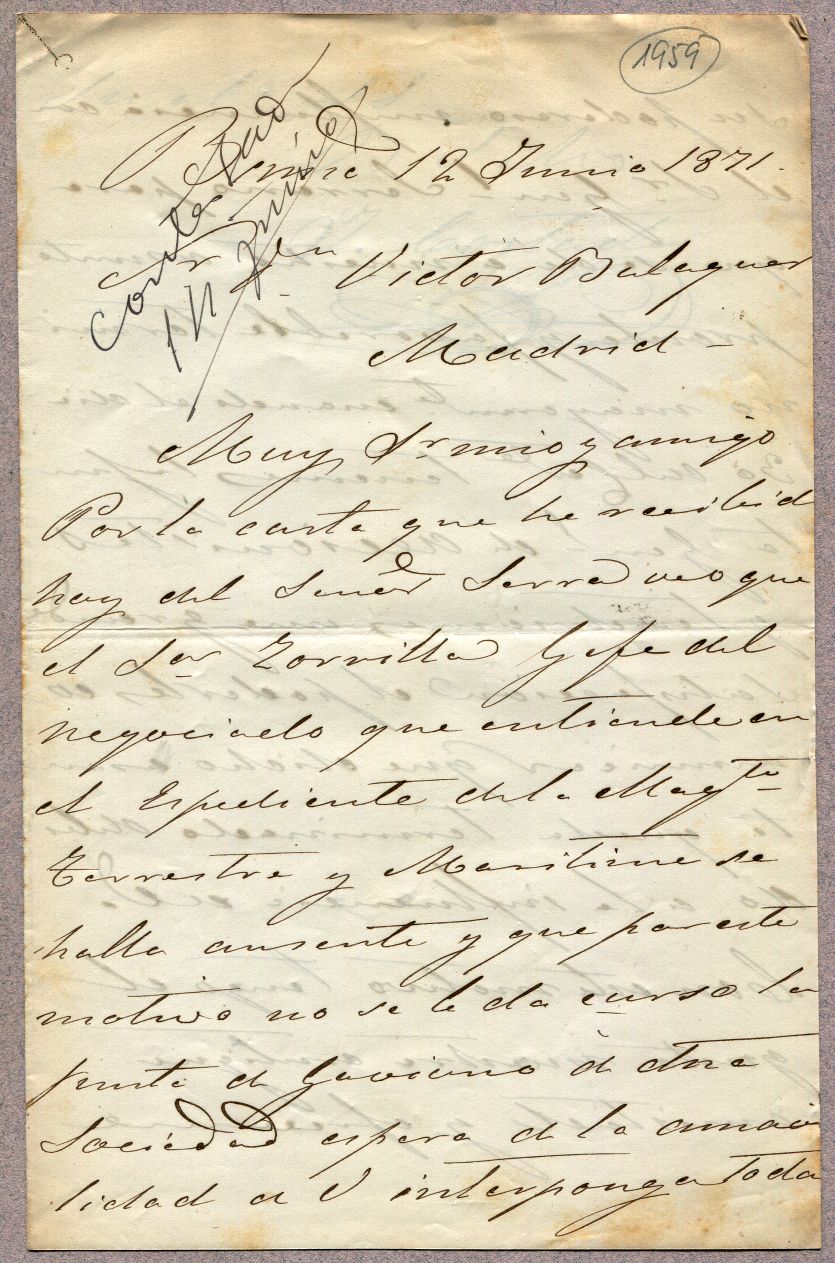 1959
Contestad
14 Junio
12 Junio 1871.
Sr Dn Victor Balaguer
Madrid -
Muy Sr mio y amigo
Por la carta que he recibid
hoy del Señor Serra veo que
el Sor Zorrilla Gefe del
negociado que entiende en
el Espediente de la Magta
Terrestre y Maritime se
halla ausente y que por este
motivo no se le da curso la
junta de Goviano de dha
Sociedad espera de la amavi
lidad de V interponga toda